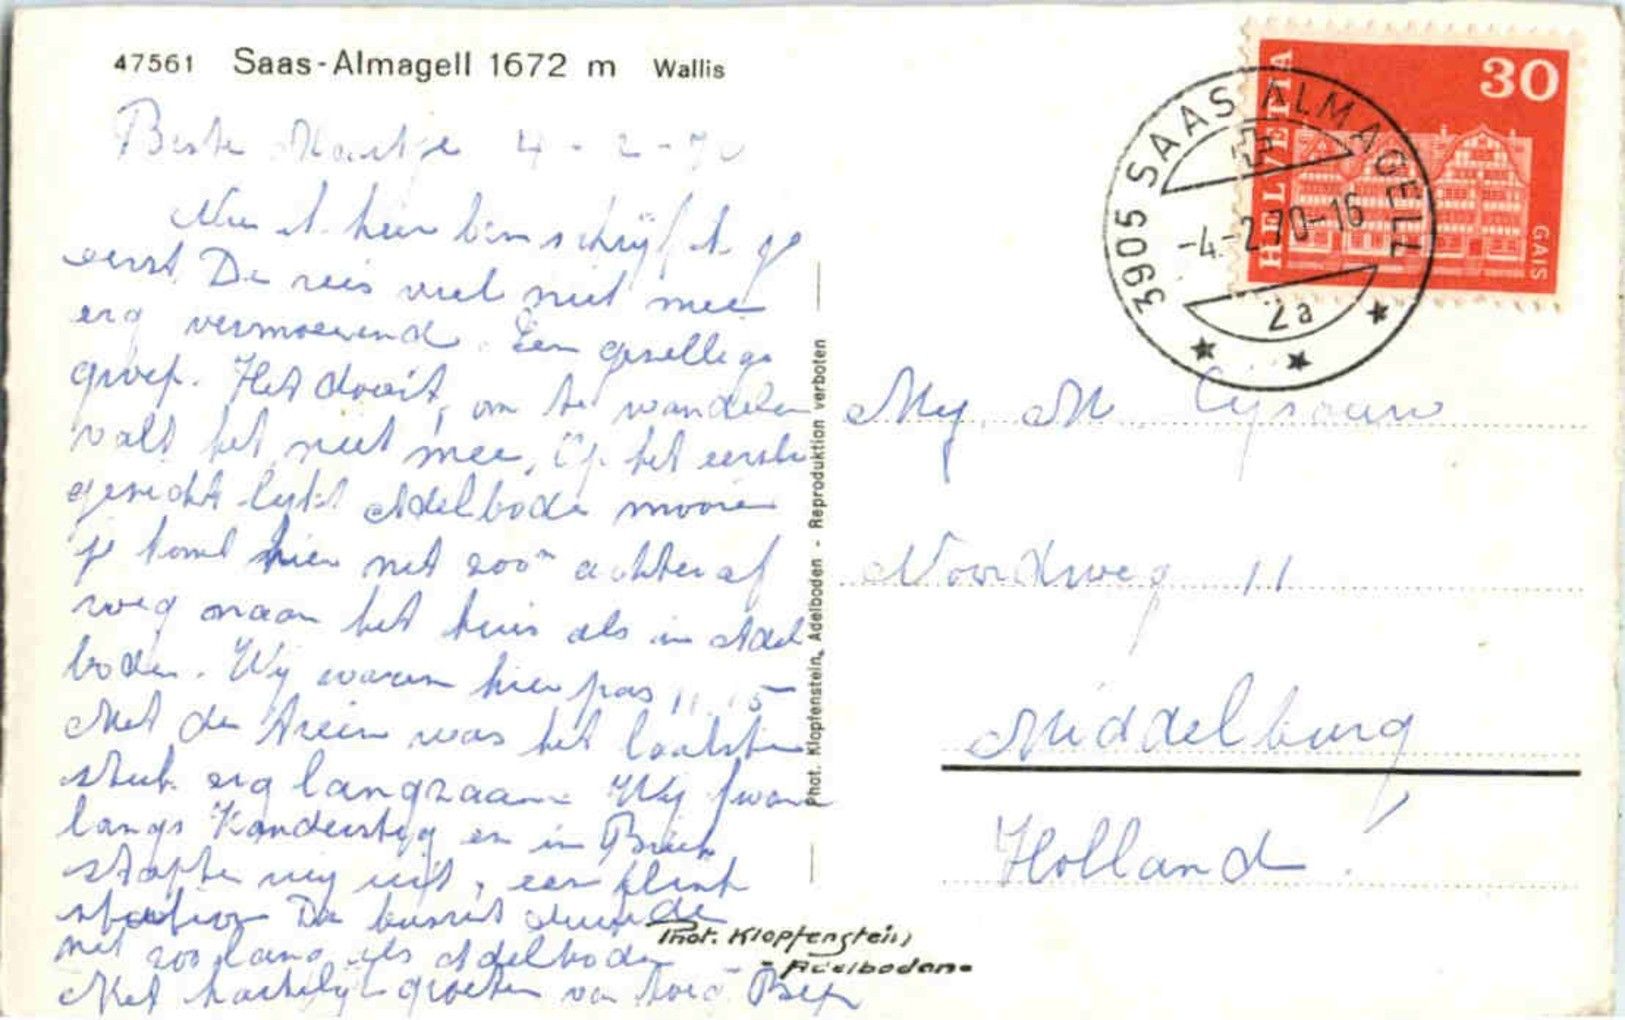 47561 Saas-Almagell 1672 m Wallis
Beste Maatje 4-2-70
Nu ik hier ben schrijf ik je
eerst. De reis viel niet mee
erg vermoeiend. Een gezellige
groep. Het dooit, om te wandelen
valt het niet mee. Op het eerste
gezicht lijkt Adelboden mooier
je komt hier net zoo'n achteraf
weg naar het huis als in Adel
boden. Wij waren hier pas 11.15
Met de trein was het laatste
stuk erg langzaam. Wij kwamen
langs Kandersteg en in
stapte wij uit, een flink
station De busrit duurde
net zoo lang als Adelboden
Met hartelijke groeten van Bep
Phot. Klopfenstein, Adelboden - Reproduktion verboten
Phot. Klopfenstein,
Adelboden.
HELVETIA
30
GAIS
3905 SAAS ALMAGELL
-4.-2.70-16
2a
Mej. M.
Noordweg 11
Middelburg
Holland.